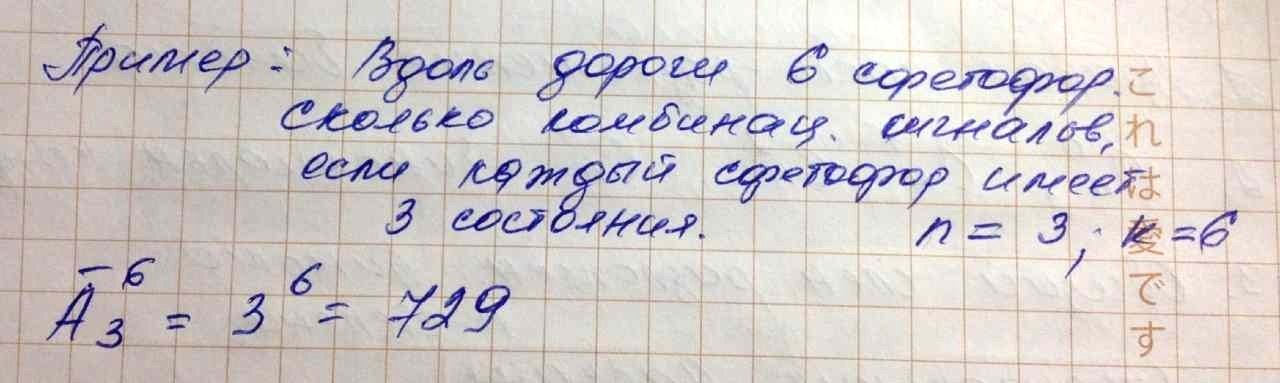 Пример: Вдоль дороги 6 светофор.
сколько комбинац. сигналов,
если каждый светофор имеет
3 состояния. n = 3; k = 6
Ā₃⁶ = 3⁶ = 729
これは変です